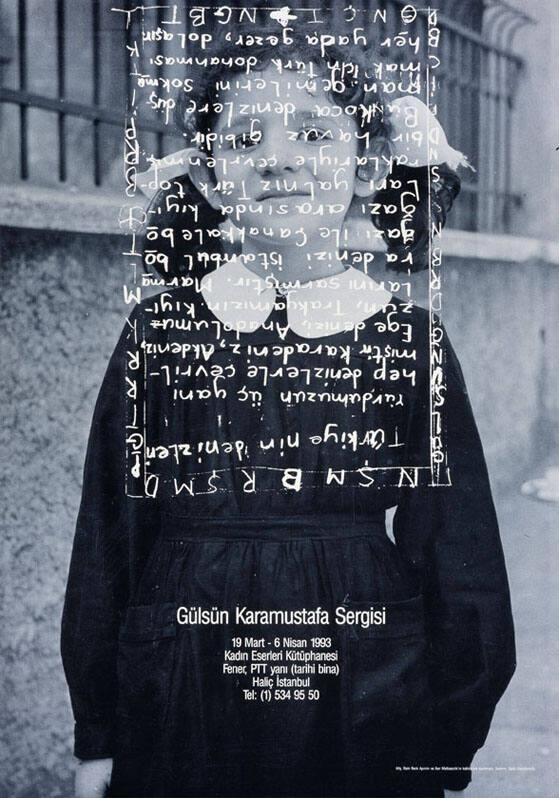 Türkiye nin denizleri
Yurdumuzun üç yanı
hep denizlerle çevril-
miştir Karadeniz, Akdeniz,
Ege denizi, Anadolumuz
zün, Trakyamızın kıyı-
larını sarmıştır. Marma
ra denizi istanbul bo
ğazı ile Çanakkale bo
ğazı arasında kıyı-
ları yalnız Türk top-
raklariyle çevrlenmiş
bir havuz gibidir.
Bu koca denizlere düş
man gemilerini sokma
mak için Türk donanması
her yada gezer, dolaşır
Gülsün Karamustafa Sergisi
19 Mart - 6 Nisan 1993
Kadın Eserleri Kütüphanesi
Fener, PTT yanı (tarihi bina)
Haliç İstanbul
Tel: (1) 534 95 50